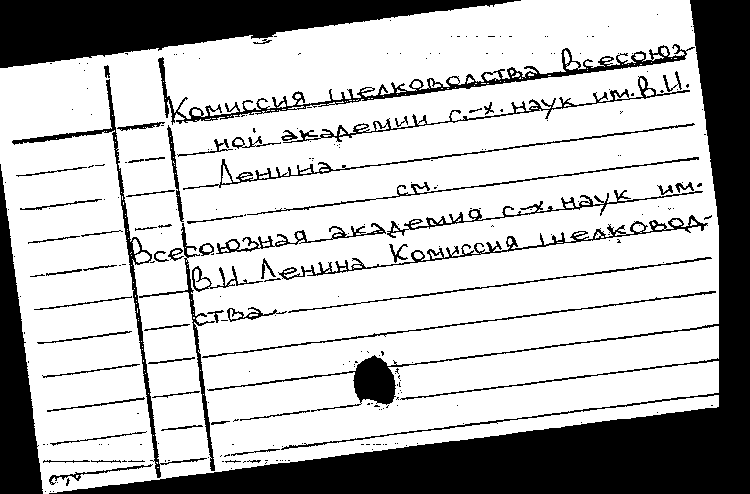 Комиссия шелководства Всесоюз-
ной академии с.-х. наук им. В.И.
Ленина.
см.
Всесоюзная академия с.-х. наук им.
В.И. Ленина. Комиссия шелковод-
ства.